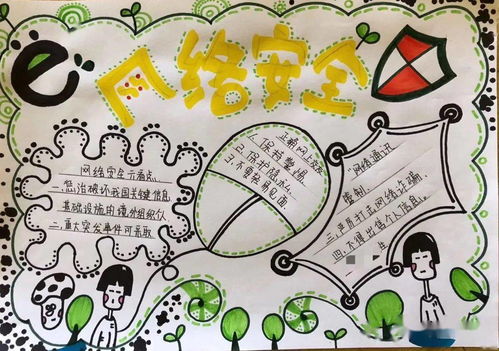 网络安全
网络安全六看点
一.惩治破坏我国关键信息
基础设施的境外组织仅
二.重大突发事件可采取
正确网上交友
1.保持警惕
2.保护隐私
3.不要轻易见面.
"网络通讯
管制.
三.严厉打击网络诈骗.
四.不得出售个人信息.